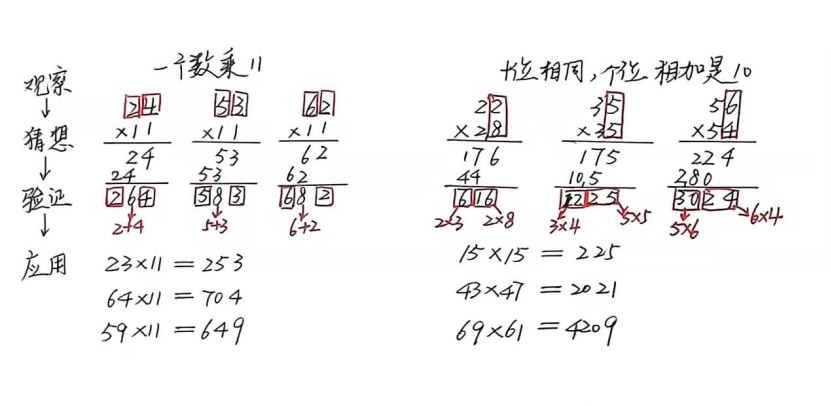 观察
↓
猜想
↓
验证
↓
应用
一个数乘11
24
×11
24
24
264
2+4
53
×11
53
53
583
5+3
62
×11
62
62
682
6+2
23×11=253
64×11=704
59×11=649
十位相同,个位相加是10
22
×28
176
44
616
2×3 2×8
35
×35
175
10,5
1225
3×4 5×5
56
×54
224
2,80
3024
5×6 6×4
15×15=225
43×47=2021
69×61=4209